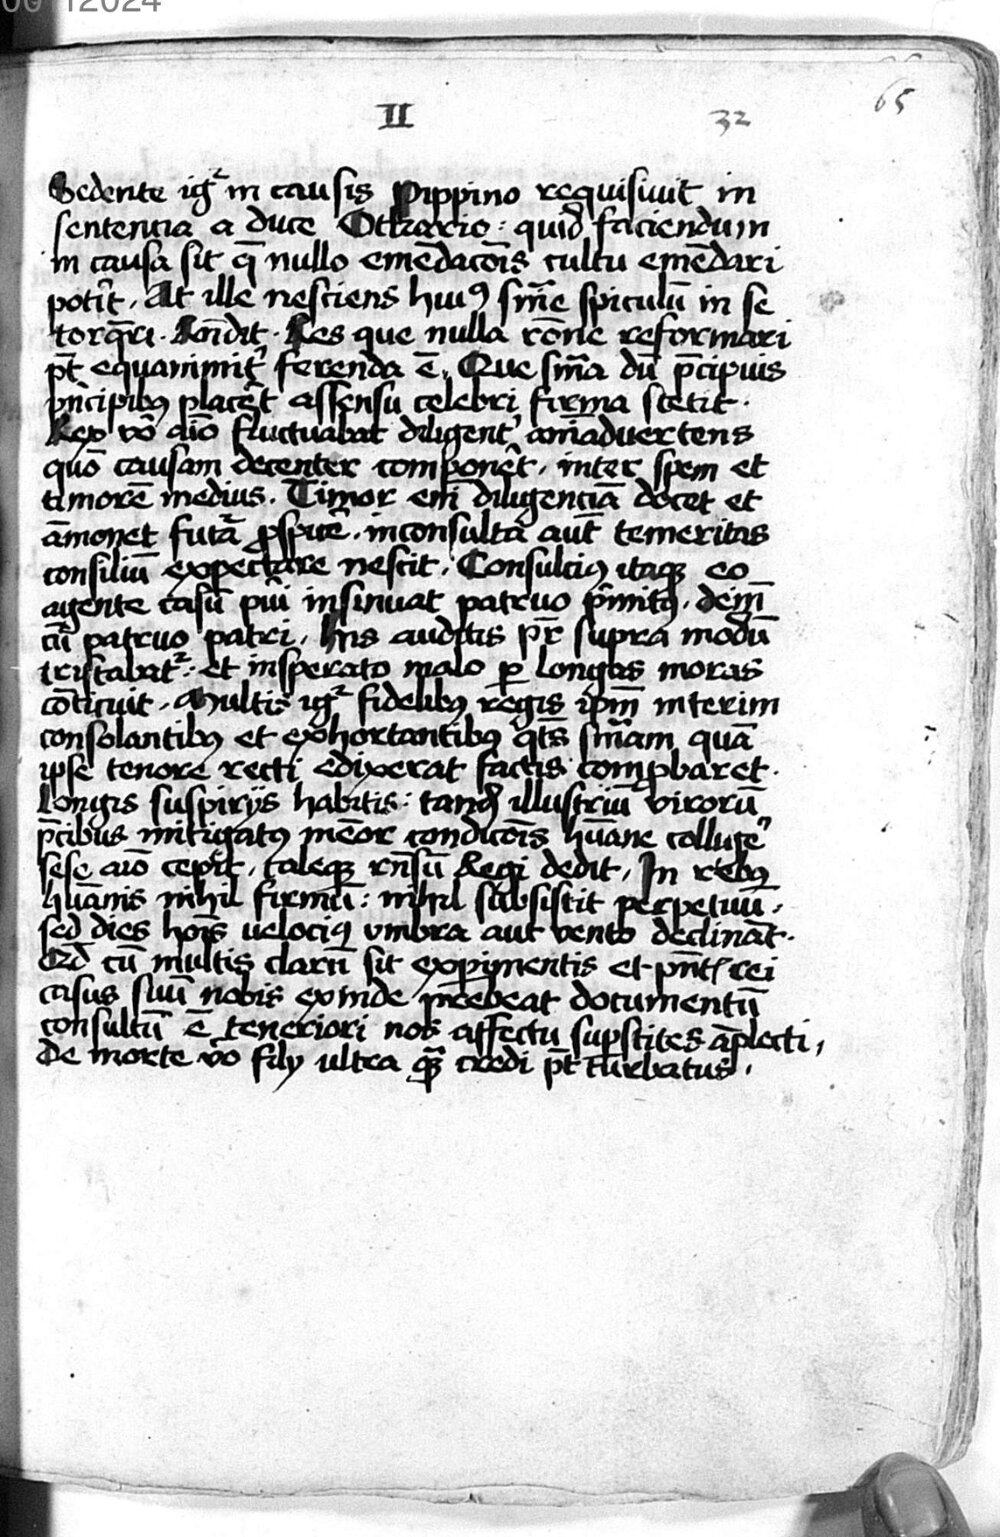 00 12024
65
II 32
Sedente igr̄ in causis Pippino requisiuit in
sententia a duce Otkario : quid faciendum
in causa sit q̄ nullo emēdacōis cultu emēdari
potīt . At ille nesciens huiꝰ sm̄e spiculū in se
torq̄ri . Rōndit . Res que nulla rōne reformari
pt̄ equanimit̓ ferenda ē . Que sm̄a dū p̄cipuis
pn̄cipibꝰ placēt assensu celebri firma stetit .
Rex vō aīo fluctuabat diligent̓ aīaduertens
quō causam decenter componēt . inter spem et
timorē medius . Timor eni diligenciā docet et
āmonet futā ꝓspicē . inconsulta aūt temeritas
consiliū expectare nescit . Consulciꝰ itaqꝫ eo
agente casū pūi insinuat patruo p̄mitꝰ . deīn
cū patruo patri . His auditis pr̄ supra modū
tristabat̄ : et insperato malo ꝑ longas moras
cōticuit . Multis igr̄ fidelibꝰ regis ipm̄ interim
consolantibꝰ et exhortantibꝰ qt̄s sm̄am quā
ipse tenore recti edixerat factis comꝓbaret .
Longis suspirijs habitis : tandē illustriū virorū
p̄cibus mitigatꝰ memōr condicōis hūane collige
sese aīo cepit . taleqꝫ rn̄sū Regi dedit . In rebꝰ
hūanis nihil firmū : nihil subsistit perpetuū .
sed dies hoīs velociꝰ vmbra aut vento declinat .
Qd̄ cū multis clarū sit experimentis et pn̄tꝭ rei
casus suū nobis exinde prebeat documentū
consultū ē teneriori nos affectu suꝑstites āplecti ,
De morte vō filij ultra qꝫ̄ credi pt̄ turbatus .